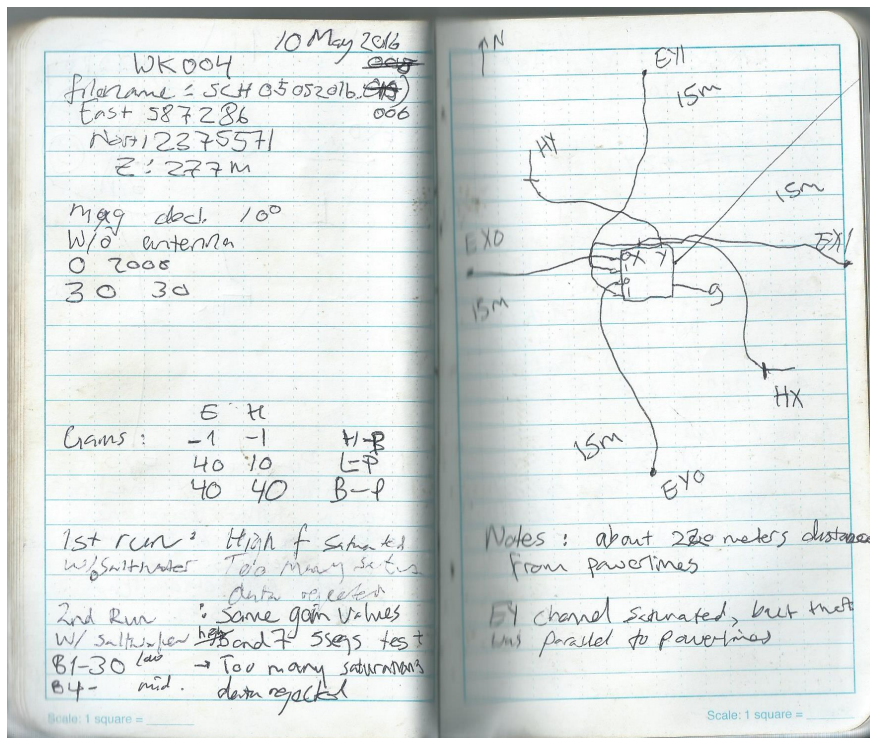 10 May 2016
WK004
filename : SCH 05052016.
006
East 587286
North 2375571
Z : 277m
mag decl. 10°
W/o antenna
0 2000
30 30
E H
Gains : -1 -1 H-P
40 10 L-P
40 40 B-P
1st run : High f saturated
w/o Saltwater Too many satus
data rejected
2nd Run : Same gain values
W/ saltwater and 7- 5segs test
B1-30 low → Too many saturations
B4- mid. data rejected
Scale: 1 square =
N
EY1
15m
HY
15m
EX0
EX1
X Y
g
15m
HX
15m
EY0
Notes : about meters distance
from powerlines
EY channel saturated, but that
was parallel to powerlines
Scale: 1 square =